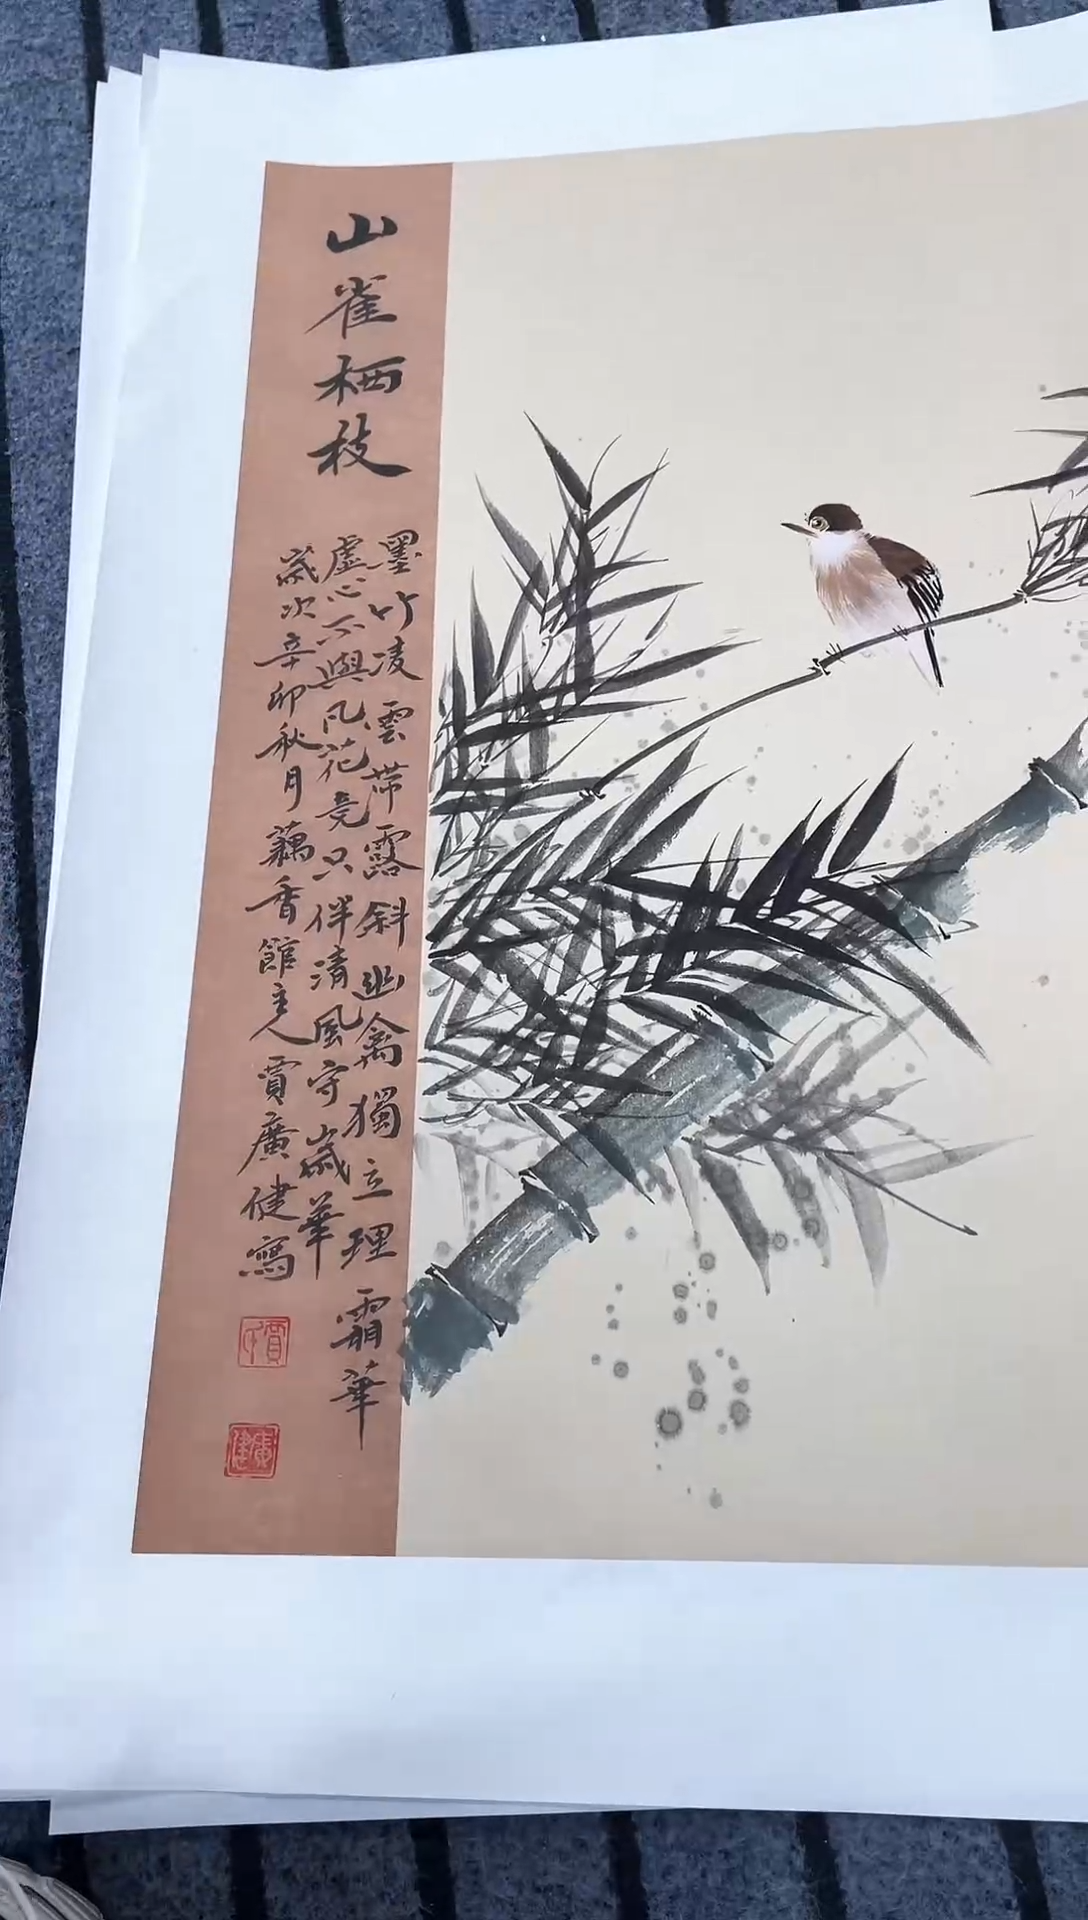 山雀栖枝
墨竹凌雲帶露斜幽禽獨立理霜華
虛心不與凡花竞只伴清風守歲華
歲次辛卯秋月藕香館主人賈廣健寫
賈氏
廣健